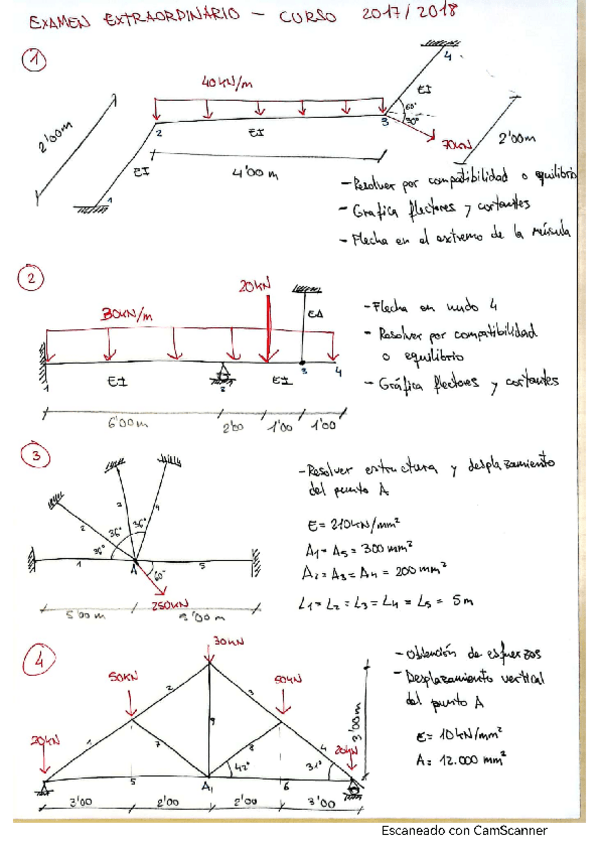 EXAMEN EXTRAORDINARIO - CURSO 2017/2018
1
40kN/m
4
EI
60°
30°
2
EI
3
70kN
2'00m
2'00m
EI
4'00m
1
- Resolver por compatibilidad o equilibrio
- Grafica flectores y cortantes
- Flecha en el extremo de la ménsula
2
20kN
30kN/m
EA
EI
EI
1
2
3
4
6'00m
2'00
1'00
1'00
- Flecha en nudo 4
- Resolver por compatibilidad
o equilibrio
- Gráfica flectores y cortantes
3
2
3
4
36°
36°
36°
1
A
5
60°
250kN
5'00m
- Resolver estructura y desplazamiento
del punto A
E = 210kN/mm²
A₁ = A₅ = 300mm²
A₂ = A₃ = A₄ = 200mm²
L₁ = L₂ = L₃ = L₄ = L₅ = 5m
4
30kN
50kN
50kN
20kN
20kN
2
3
1
4
7
9
8
42°
31°
5
A₁
6
3'00m
3'00
2'00
2'00
3'00
- Obtención de esfuerzos
- Desplazamiento vertical
del punto A
E = 10kN/mm²
A = 12.000mm²
Escaneado con CamScanner